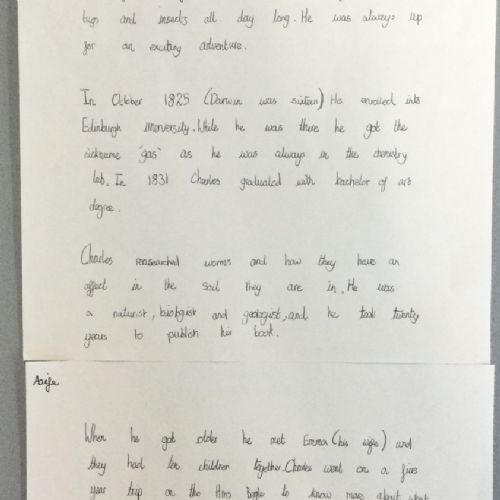 bugs and insects all day long. He was always up
for an exciting adventure.
In October 1825 (Darwin was sixteen) He enrolled into
Edinburgh University. While he was there he got the
nickname "gas" as he was always in the chemistry
lab. In 1831 Charles graduated with bachelor of arts
degree.
Charles reasearched worms and how they have an
affect in the soil they are in. He was
a naturist, biologist and geologist, and he took twenty
years to publish his book.
When he got older he met Emma (his wife) and
they had ten children together. Charles went on a five
year trip on the Hms Beagle to know more about what